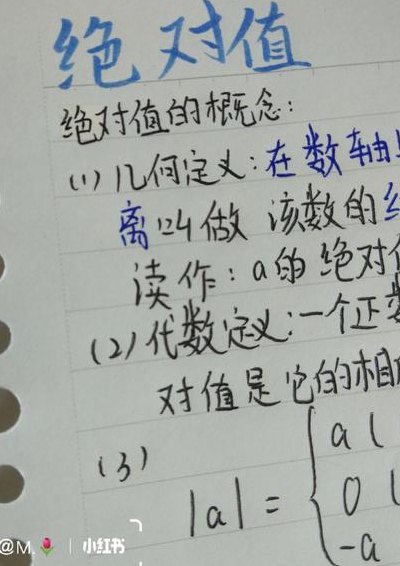 绝对值
绝对值的概念:
(1)几何定义:在数轴
离叫做 该数的
读作:a的 绝对
(2)代数定义:一个正
对值是它的相
(3)
|a| = { a (
0 (
-a
@M.🌷 | 小红书